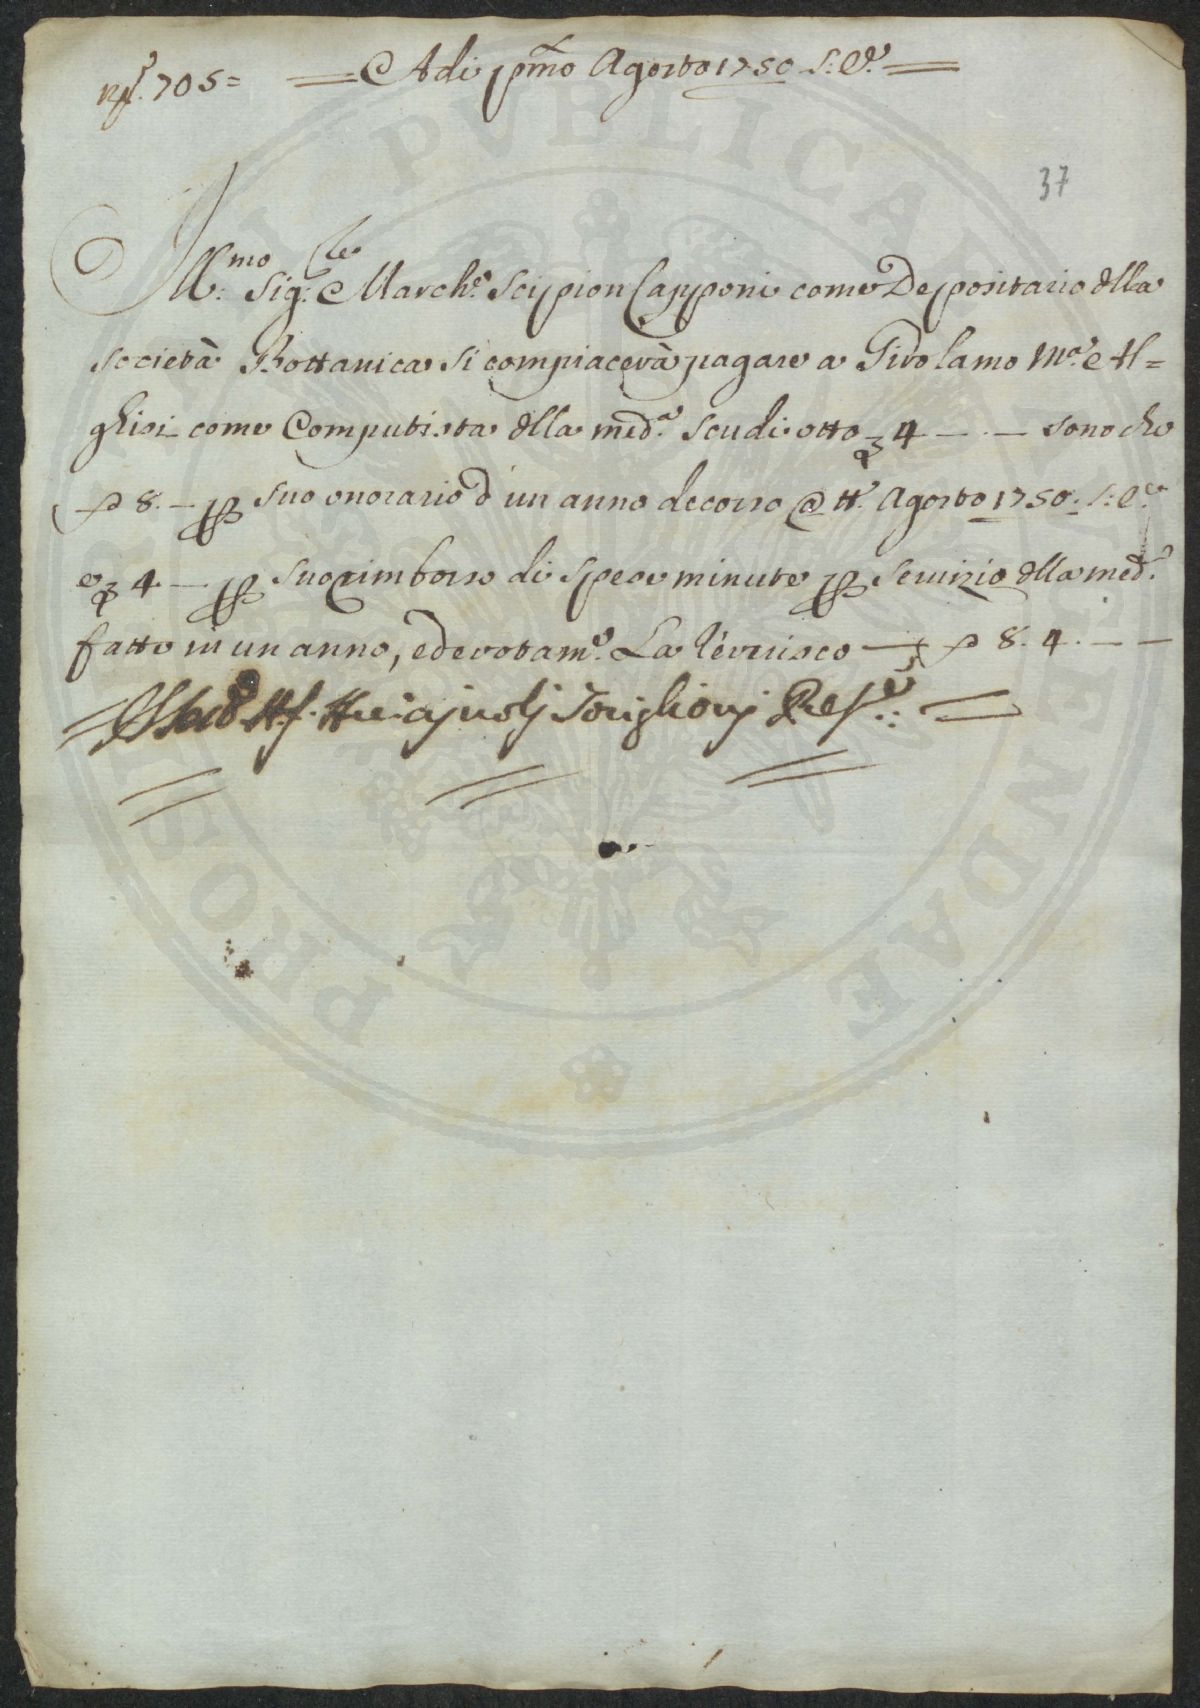 N.° 705= Adi pmo Agosto 1750 S: C.
37
Ill.mo Sig.re March.e Scipion Capponi come Depositario della
Società Bottanica si compiacerà pagare a Girolamo M.a Al=
ghisi come Computista della med.a scudi otto 4 — · — sono che
8. — p suo onorario d un anno decorso @ tt.o Agosto 1750. S: C.
e 4 — p suo rimborso di spese minute p servizio della med.a
fatto in un anno, e devotam.e La riverisco — 8. 4. — —
PROSPERITATI PVBLICAE AVGENDAE